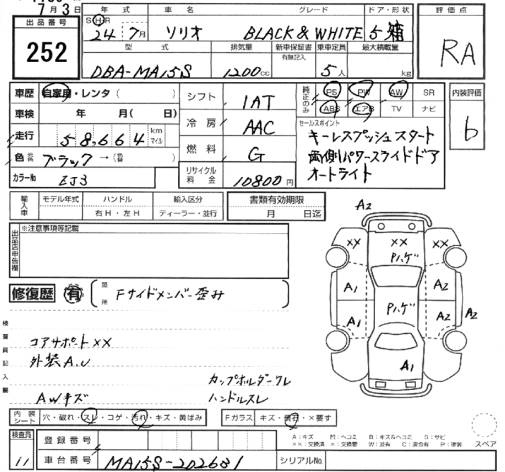 7月3日
出品番号
252
年式 車名 グレード ドア・形状 評価点
S・H・R 24年 7月 ソリオ BLACK & WHITE 5 箱 RA
型式 排気量 新車保証書 乗車定員 最大積載量
有無記入
DBA-MA15S 1200cc 5人 kg
車歴 自家用・レンタ( )
車検 年 月( 日)
走行 58,664 km マイル
色 ブラック → (色替)
カラーNo ZJ3
シフト IAT
冷房 AAC
燃料 G
リサイクル料金 10800円
純正のみ PS PW AW SR
ABS エアB TV ナビ
内装評価 b
セールスポイント
キーレスプッシュスタート
両側パワースライドドア
オートライト
輸入車 モデル年式 ハンドル 輸入区分 書類有効期限
右H・左H ディーラー・並行 月 日迄
出品店申告欄 ※注意事項等記載
修復歴 有 箇所 Fサイドメンバー歪み
検査員記入欄
コアサポートXX
外装A.U
AWキズ
カップホルダークレ
ハンドルスレ
A2
XX XX XX
Pハゲ
A1 A2
Pハゲ
A1 A2 A2
A1
内装シート 穴・破れ・スレ・コゲ・汚れ・キズ・黄ばみ
Fガラス キズ・飛石・×要す
A:キズ M:ヘコミ B:キズ&ヘコミ S:サビ
スペア
検査員
登録番号
車台番号 MA15S-202681
シリアルNo.